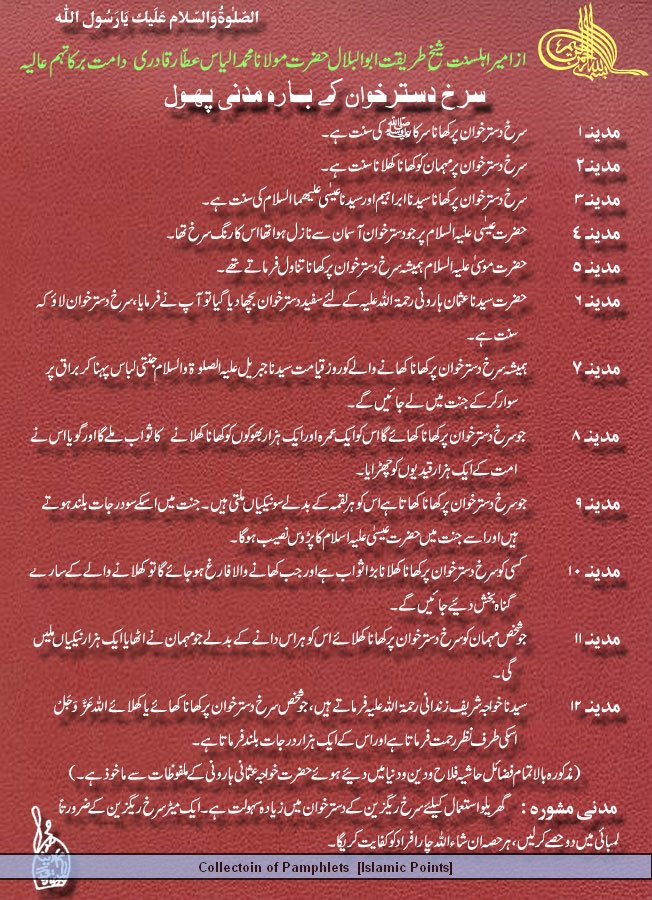 الصلوٰۃ والسلام علیک یا رسول اللہ
از امیر اہلسنت شیخ طریقت ابوالبلال حضرت مولانا محمد الیاس عطار قادری دامت برکاتہم عالیہ
سرخ دسترخوان کے بارہ مدنی پھول
مدینہ ۱ سرخ دسترخوان پر کھانا سرکار ﷺ کی سنت ہے۔
مدینہ ۲ سرخ دسترخوان پر مہمان کو کھانا کھلانا سنت ہے۔
مدینہ ۳ سرخ دسترخوان پر کھانا سیدنا ابراہیم اور سیدنا عیسٰی علیھما السلام کی سنت ہے۔
مدینہ ۴ حضرت عیسٰی علیہ السلام پر جو دسترخوان آسمان سے نازل ہوا تھا اس کا رنگ سرخ تھا۔
مدینہ ۵ حضرت موسٰی علیہ السلام ہمیشہ سرخ دسترخوان پر کھانا تناول فرماتے تھے۔
مدینہ ۶ حضرت سیدنا عثمان ہارونی رحمۃ اللہ علیہ کے لئے سفید دسترخوان بچھا دیا گیا تو آپ نے فرمایا، سرخ دسترخوان لاؤ کہ
سنت ہے۔
مدینہ ۷ ہمیشہ سرخ دسترخوان پر کھانا کھانے والے کو روز قیامت سیدنا جبریل علیہ الصلوۃ والسلام جنتی لباس پہنا کر براق پر
سوار کر کے جنت میں لے جائیں گے۔
مدینہ ۸ جو سرخ دسترخوان پر کھانا کھائے گا اس کو ایک عمرہ اور ایک ہزار بھوکوں کو کھانا کھلانے کا ثواب ملے گا اور گویا اس نے
امت کے ایک ہزار قیدیوں کو چھڑایا۔
مدینہ ۹ جو سرخ دسترخوان پر کھانا کھاتا ہے اس کو ہر لقمہ کے بدلے سو نیکیاں ملتی ہیں۔ جنت میں اسکے سو درجات بلند ہوتے
ہیں اور اسے جنت میں حضرت عیسٰی علیہ اسلام کا پڑوس نصیب ہو گا۔
مدینہ ۱۰ کسی کو سرخ دسترخوان پر کھانا کھلانا بڑا ثواب ہے اور جب کھانے والا فارغ ہو جائے گا تو کھلانے والے کے سارے
گناہ بخش دیئے جائیں گے۔
مدینہ ۱۱ جو شخص مہمان کو سرخ دسترخوان پر کھانا کھلائے اس کو ہر اس دانے کے بدلے جو مہمان نے اٹھایا ایک ہزار نیکیاں ملیں
گی۔
مدینہ ۱۲ سیدنا خواجہ شریف زندانی رحمۃ اللہ علیہ فرماتے ہیں، جو شخص سرخ دسترخوان پر کھانا کھائے یا کھلائے اللہ عَزَّ وَجَلَّ
اسکی طرف نظر رحمت فرماتا ہے اور اس کے ایک ہزار درجات بلند فرماتا ہے۔
(مذکورہ بالا تمام فضائل حاشیہ فلاح و دین و دنیا میں دیئے ہوئے حضرت خواجہ عثمانی ہارونی کے ملفوظات سے ماخوذ ہے۔)
مدنی مشورہ : گھریلو استعمال کیلئے سرخ ریگزین کے دسترخوان میں زیادہ سہولت ہے۔ ایک میٹر سرخ ریگزین کے ضرورتاً
لمبائی میں دو حصے کر لیں، ہر حصہ ان شاء اللہ چار افراد کو کفایت کریگا۔
Collectoin of Pamphlets [Islamic Points]